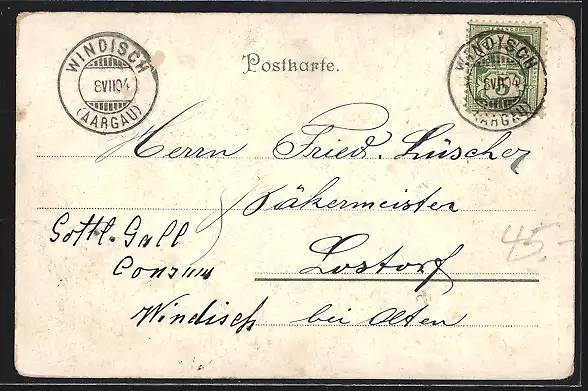 WINDISCH
8 VII 04
(AARGAU)
Postkarte.
WINDISCH
8 VII 04
(AARGAU)
5
Herrn Fried. Lüscher
Bäkermeister
Lostorf
bei Olten
Gottl. Gall
Consum
Windisch
45.-